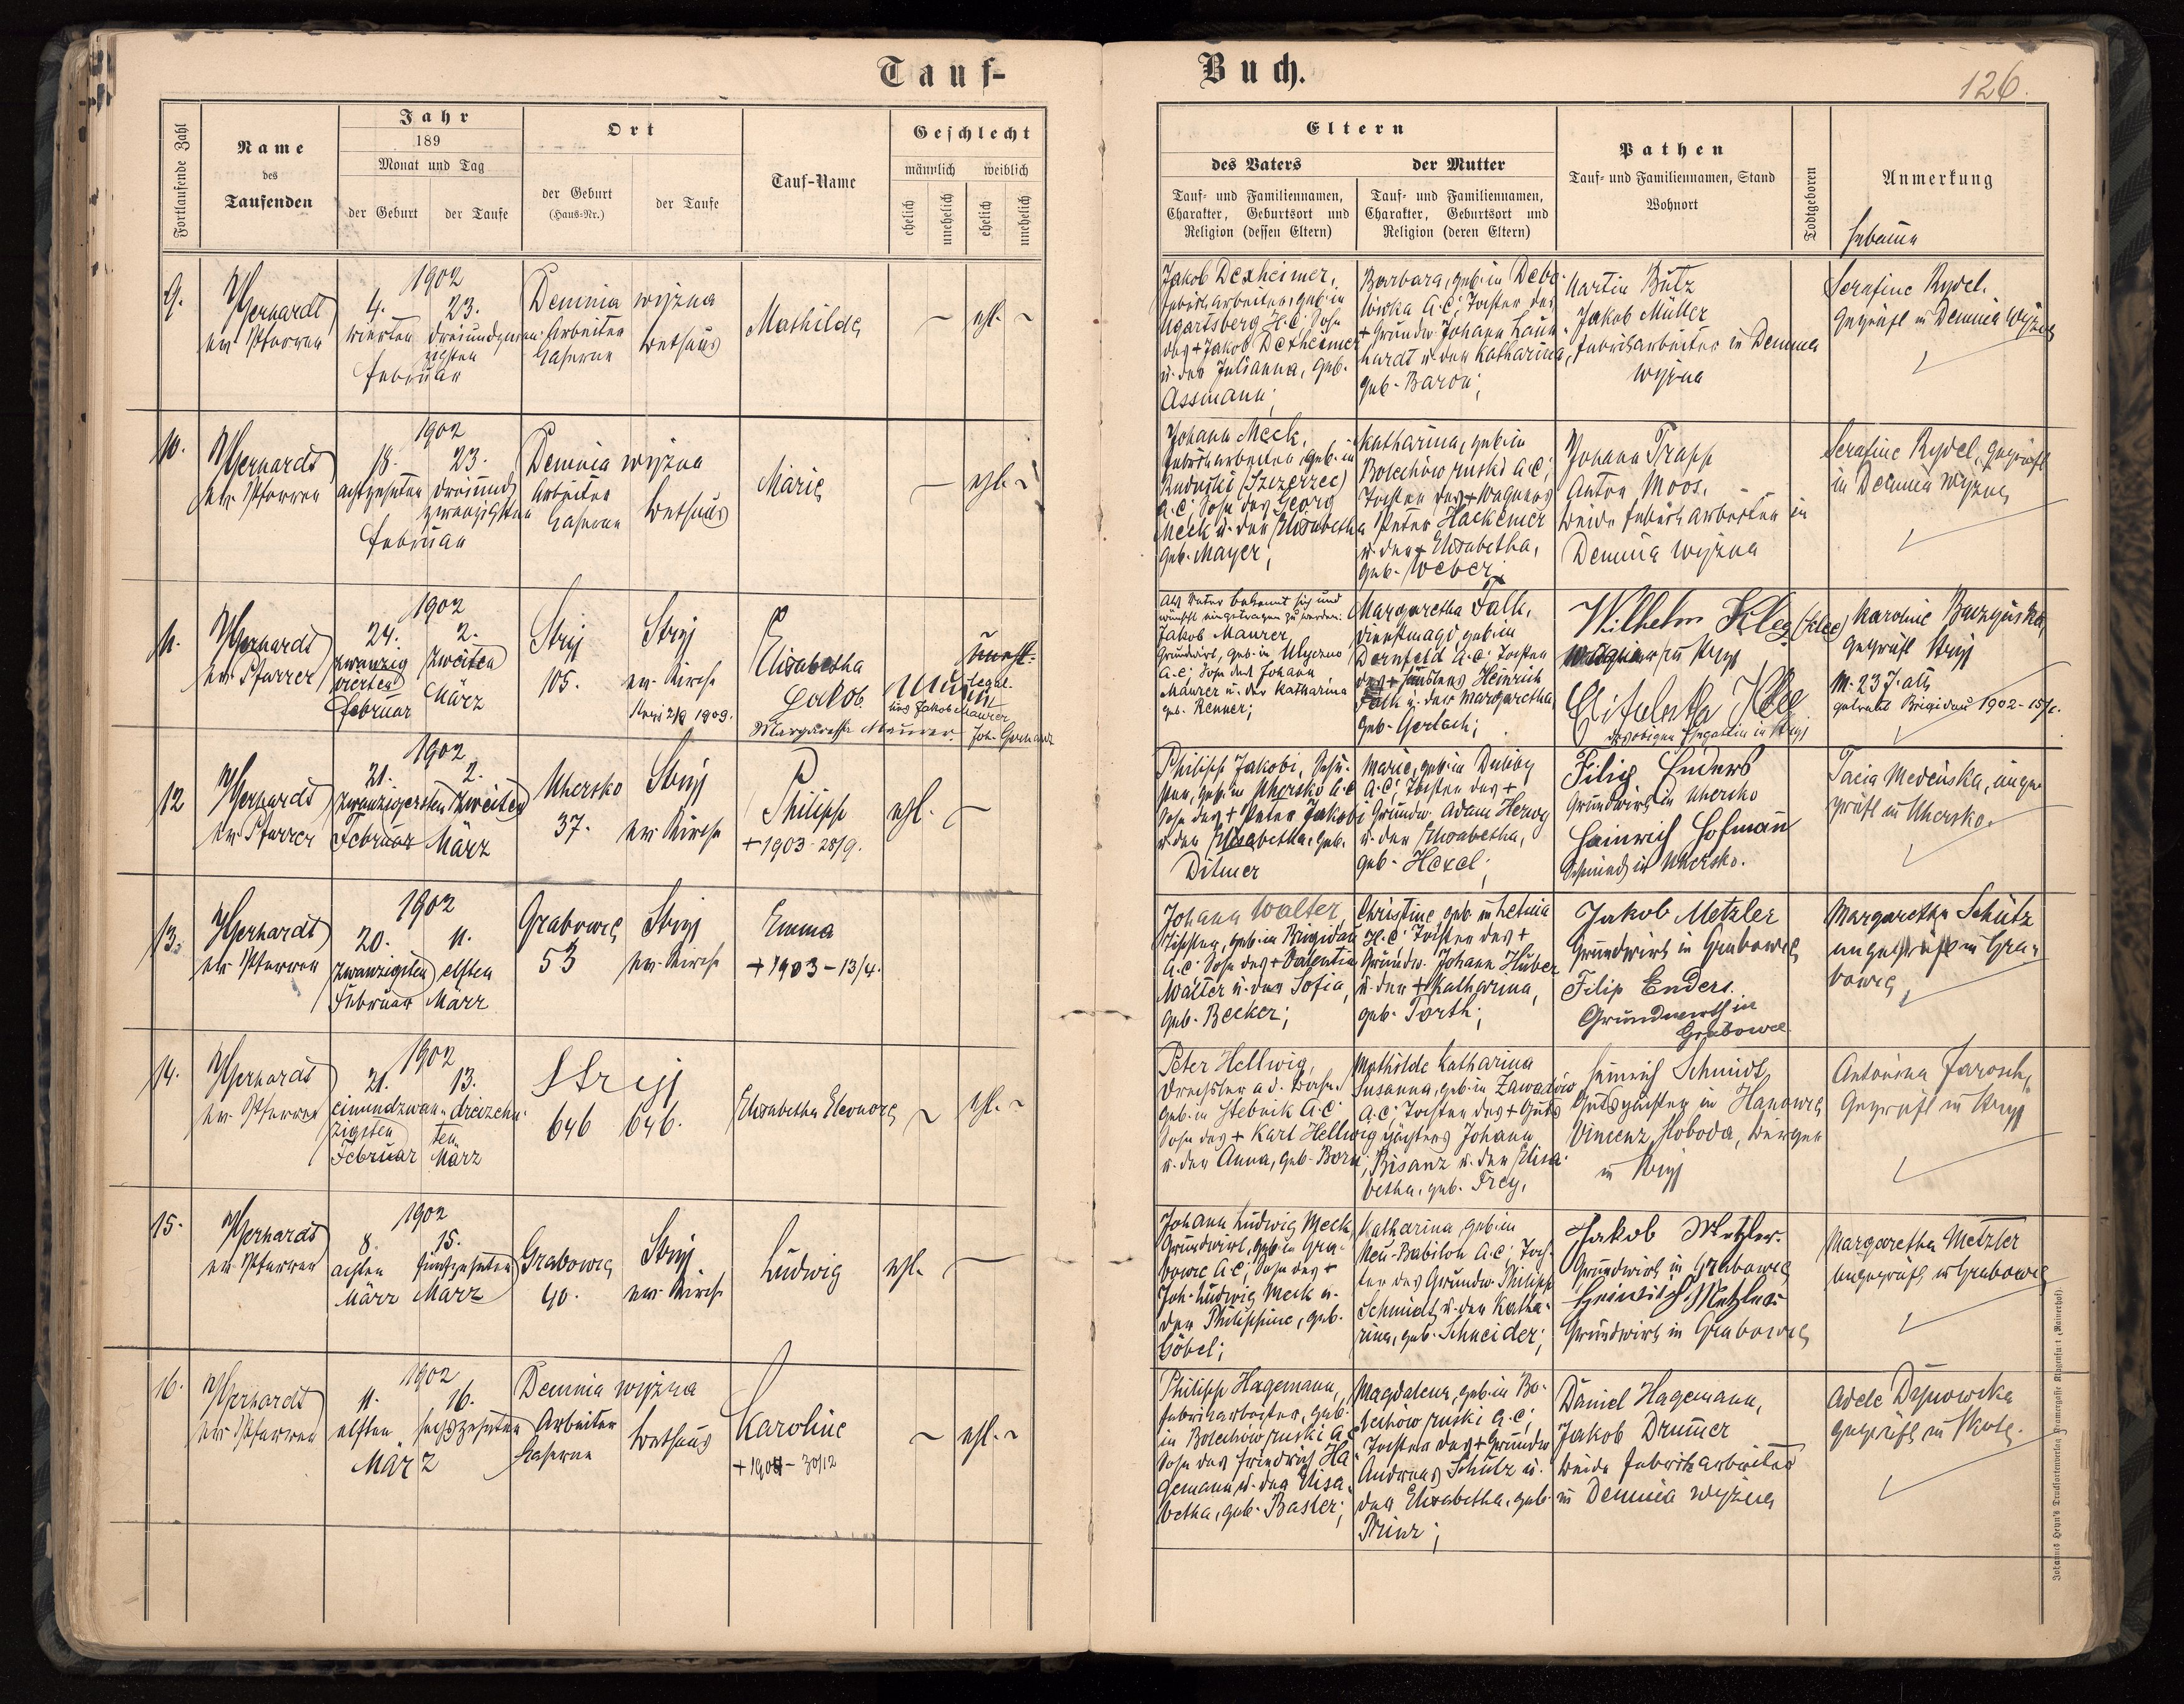 Tauf-
Buch.
126.
Fortlaufende Zahl
Name
des
Taufenden
Jahr
189
Monat und Tag
der Geburt
der Taufe
Ort
der Geburt
(Haus-Nr.)
der Taufe
Tauf-Name
Geschlecht
männlich
weiblich
ehelich
unehelich
ehelich
unehelich
Eltern
des Vaters
der Mutter
Tauf- und Familiennamen,
Charakter, Geburtsort und
Religion (dessen Eltern)
Tauf- und Familiennamen,
Charakter, Geburtsort und
Religion (deren Eltern)
Pathen
Tauf- und Familiennamen, Stand
Wohnort
Todtgeboren
Anmerkung
Hebame
9.
Gerhardt
ev. Pfarrer
1902
4. 23.
vierten dreiundzwan-
zigsten
Februar
Demnia wyzna
Arbeiter
Kaserne
Bethaus
Mathilde
ehl.
Jakob Dexheimer,
Fabriksarbeiter, geb. in
Ugartsberg H.C. Sohn
des + Jakob Dexheimer
u. der Julianna, geb.
Assmann;
Barbara, geb. in Debo-
wska A.C.; Tochter des
+ Grundw. Johann Laun-
hardt u. der Katharina,
geb. Baron;
Martin Butz
Jakob Müller
Fabriksarbeiter in Demnia
wyzna
Serafine Rydel.
Geprüft in Demnia wyzna
10.
Gerhardt
ev. Pfarrer
1902
18. 23.
achtzehnten dreiund-
zwanzigsten
Februar
Demnia wyzna
Arbeiter
Kaserne
Bethaus
Marie
ehl.
Johann Meck,
Fabriksarbeiter, geb. in
A.C.; Sohn des Georg
Meck u. der Elisabetha
geb. Mayer;
Katharina, geb. in
Bolechow ruski A.C.;
Tochter des + Wagners
Peter Hackemer
u. der + Elisabetha,
geb. Weber;
Johann Trapp
Anton Moos,
beide Fabriksarbeiter in
Demnia wyzna
Serafine Rydel, geprüft
in Demnia wyzna
11.
Gerhardt
ev. Pfarrer
1902
24. 2.
zwanzig zweiten
vierten
Februar März
Stryj
105.
Stryj
ev. Kirche
Elisabetha
Jakob Maurer
Margaretha Maurer
Joh. Gerhardt
Als Vater bekennt sich und
wünscht eingetragen zu werden:
Jakob Maurer,
Grundwirt, geb. in
A.C.; Sohn des Johann
Maurer u. der Katharina
geb. Renner;
Margaretha Falk,
Dienstmagd, geb. in
Dornfeld A.C. Tochter
des + Heinrich
Falk u. der Margaretha
geb. Gerlach;
Wilhelm Kleg (Klee)
Wagner in Stryj
Elisabetha Klee
des obigen Ehegattin in Stryj
Karoline
geprüft Stryj
getraut Brigidau 1902-
12
Gerhardt
ev. Pfarrer
1902
21. 2.
zwanzigersten zweiten
Februar März
Uhersko
37.
Stryj
ev. Kirche
Philipp
+ 1903 - 28/9.
ehl.
Philipp Jakobi,
geb. in Uhersko A.C.
Sohn des + Peter Jakobi
u. der Elisabetha, geb.
Ditmer
Marie, geb. in Duliby
A.C.; Tochter des +
Grundw. Adam Herwy
u. der Elisabetha,
geb. Hexel;
Filip Enders
Grundwirth in Uhersko
Heinrich Hofmann
Schmied in Uhersko.
Tacia Medenska, unge-
prüft in Uhersko.
13.
Gerhardt
ev. Pfarrer
1902
20. 11.
zwanzigsten elften
Februar März
Grabowce
53
Stryj
ev. Kirche
Emma
+ 1903 - 13/4.
Johann Walter,
geb. in Brigidau
A.C. Sohn des + Valentin
Walter u. der Sofia,
geb. Becker;
Christine, geb. in Letnia
H.C. Tochter des +
Grundw. Johann Huber
u. der + Katharina,
geb. Forth;
Jakob Metzler
Grundwirth in Grabowce
Filip Enders.
Grundwirth in
Grabowce.
Margaretha Schütz
ungeprüft in Gra-
bowce
14.
Gerhardt
ev. Pfarrer
1902
21. 13.
einundzwan- dreizehn-
zigsten ten
Februar März
Stryj
646 646.
Elisabetha Eleonore
ehl.
Peter Hellwig,
Drechsler a. d. Bahn,
geb. in Stebnik A.C.
Sohn des + Karl Hellwig
u. der Anna, geb. Born;
Mathilde Katharina
Susanna, geb. in Zawadow
A.C.; Tochter des + Guts-
pächters Johann
Bisanz u. der Elisa-
betha, geb. Frey,
Heinrich Schmidt,
Gutspächter in Hanowce
Vincenz Sloboda,
in Stryj
Antonina Jarosch,
Geprüft in Stryj
15.
Gerhardt
ev. Pfarrer
1902
8. 15.
achten fünfzehnten
März März
Grabowce
40.
Stryj
ev. Kirche
Ludwig
ehl.
Johann Ludwig Meck,
Grundwirt, geb. in Gra-
bowce A.C.; Sohn des +
Joh. Ludwig Meck u.
der Philippine, geb.
Göbel;
Katharina geb. in
Neu-Babilon A.C.; Toch-
ter des Grundw. Philipp
Schmidt u. der Katha-
rina, geb. Schneider;
Jakob Metzler.
Grundwirth in Grabowce
Heinrich Metzler
Grundwirth in Grabowce
Margaretha Metzler
ungeprüft in Grabowce
16.
Gerhardt
ev. Pfarrer
1902
11. 16.
elften sechszehnten
März
Demnia wyzna
Arbeiter
Kaserne
Bethaus
Karoline
ehl.
Philipp Hagemann,
Fabriksarbeiter, geb.
in Bolechow ruski A.C.
Sohn des Friedrich Ha-
gemann u. der Elisa-
betha, geb. Baster;
Magdalena, geb. in Bo-
lechow ruski A.C.;
Tochter des + Grundw.
Andreas Schütz u.
der Elisabetha, geb.
Prinz;
Daniel Hagemann,
Jakob Drummer
beide Fabriksarbeiter
in Demnia wyzna
Adele Dynowska
geprüft in Skole.